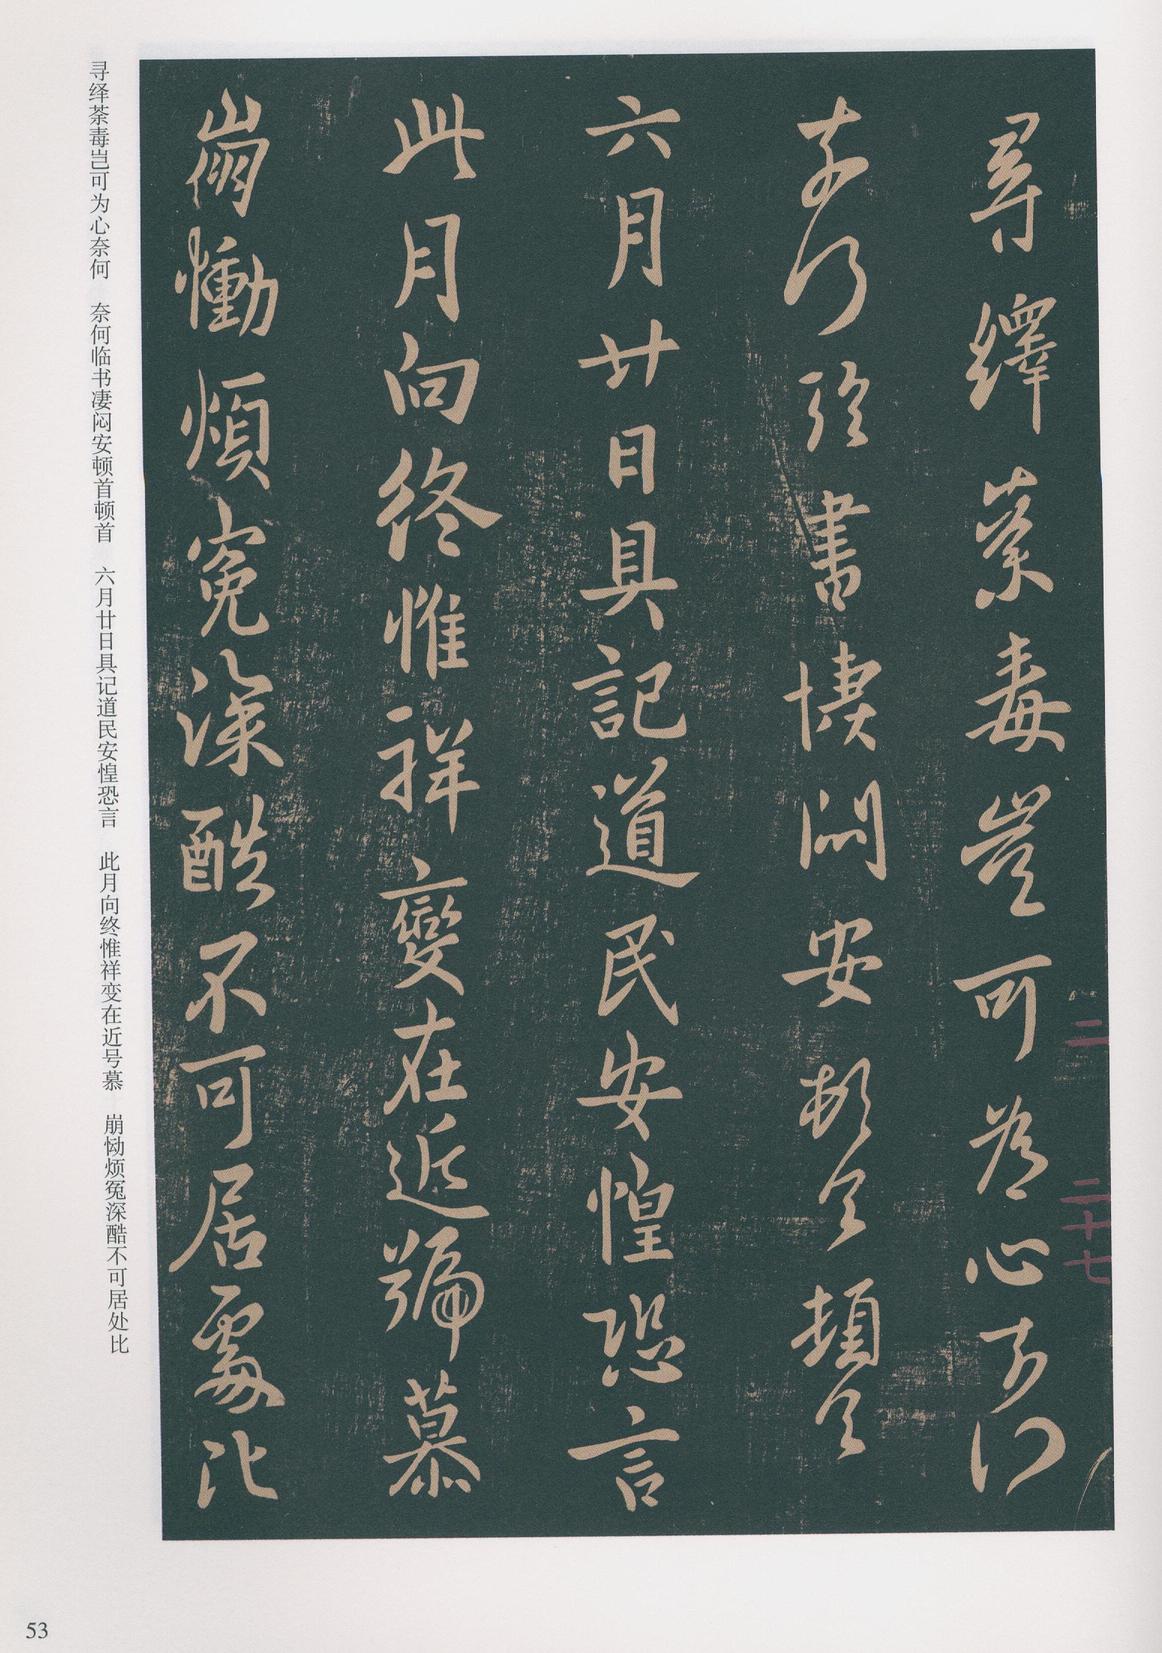 尋繹荼毒豈可為心奈何
奈何臨書悽悶安頓首頓首
六月廿日具記道民安惶恐言
此月向終惟祥變在近號慕
崩慟煩冤深酷不可居處比
二 二十七
寻绎荼毒岂可为心奈何 奈何临书凄闷安顿首顿首 六月廿日具记道民安惶恐言 此月向终惟祥变在近号慕 崩恸烦冤深酷不可居处比
53